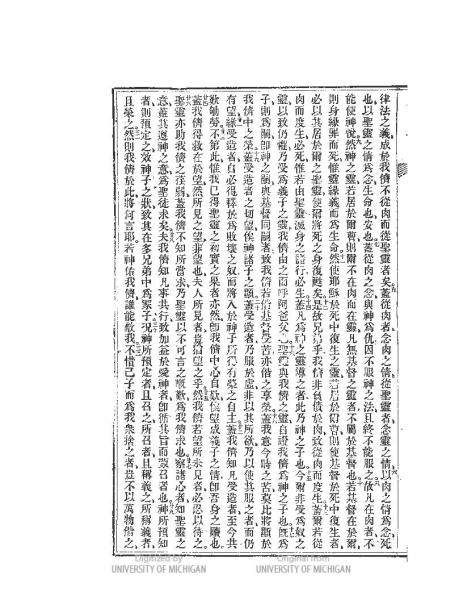 律法之義成於我儕不從肉而從聖靈者矣蓋從肉者念肉之情從聖靈者念靈之情以肉之情爲念死
也以聖靈之情爲念生命也安也蓋從肉之念與神爲仇因不服神之法且終不能服之故凡在肉者不
能使神悅然神之靈若居於爾曹則爾不在肉而在靈凡無基督之靈者不屬於基督也若基督在於爾
則身緣罪而死惟靈緣義而爲生命然使耶穌於死中復生之靈若居於爾曹則使基督於死中復生者
必以其居於爾之聖靈使爾將死之身復甦矣是故兄弟乎我儕非負債於肉致從肉而度生蓋爾若從
肉而度生必死惟若由聖靈滅身之諸行必生蓋凡爲神之靈導之者此乃神之子也今爾非受爲奴之
靈以致仍懼乃受爲義子之靈我儕由之而呼阿爸父也聖靈與我儕之靈自證我儕爲神之子也既爲
子則爲嗣即神之嗣與基督同嗣者致我儕若偕基督受苦亦偕之享榮蓋我意今時之苦莫比將顯於
我儕中之榮蓋受造者之切望俟神諸子之顯蓋受造者乃服於虛非以其所欲乃以使其服之者而仍
有望緣受造者自必得釋於爲敗壞之奴而將入於神子所得有榮之自主蓋我儕知凡受造者至今共
歎劬勞不第此惟我已得聖靈之初實之果者亦然即我儕中心自歎俟望成義子之情即吾身之贖也
蓋我儕得救在於望然所見之望非望也夫人所見者豈猶望之乎然我儕若望所未見者必忍以待之
聖靈亦助我儕之荏弱蓋我儕不知所當求乃聖靈以不可言之慨歎爲我儕求也察諸心者知聖靈之
意蓋其遵神之意爲聖徒求矣夫我儕知凡事共行致加益於愛神者即循其旨而蒙召者也神所預知
者則預定之效神子之狀致其在多兄弟中爲冢子况神所預定者且召之所召者且稱義之所稱義者
且榮之然則我儕於此將何言耶若神佑我儕誰能敵我不惜己子而爲我衆捨之者豈不以萬物偕之
Digitized by
UNIVERSITY OF MICHIGAN
Original from
UNIVERSITY OF MICHIGAN